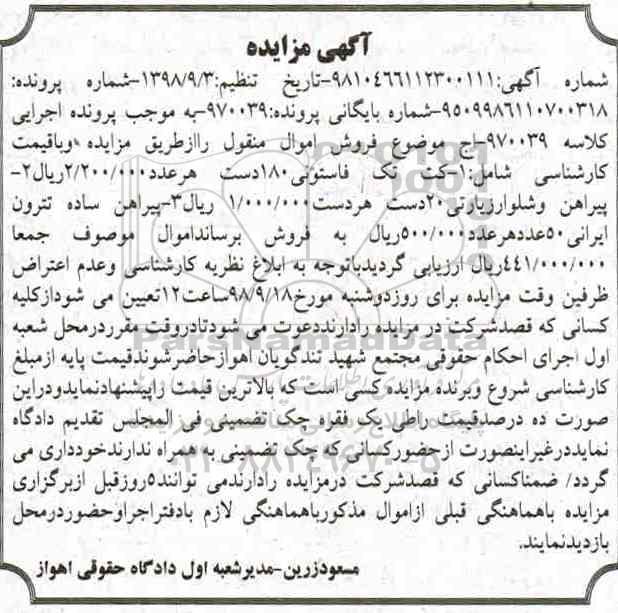 آگهی مزایده
شماره آگهی:۹۸۱۰۴۶۶۱۱۲۳۰۰۱۱۱-تاریخ تنظیم:۱۳۹۸/۹/۳-شماره پرونده:
۹۵۰۹۹۸۶۱۱۰۷۰۰۳۱۸-شماره بایگانی پرونده:۹۷۰۰۳۹-به موجب پرونده اجرایی
کلاسه ۹۷۰۰۳۹-اج موضوع فروش اموال منقول راازطریق مزایده وباقیمت
کارشناسی شامل:۱-کت تک فاستونی۱۸۰دست هرعدد۲/۲۰۰/۰۰۰ریال۲-
پیراهن وشلوارزنونی۲۰دست هردست۱/۰۰۰/۰۰۰ ریال۳-پیراهن ساده تترون
ایرانی۵۰عددهرعدد۵۰۰/۰۰۰ریال به فروش برسانداموال موصوف جمعا
۴۴۱/۰۰۰/۰۰۰ریال ارزیابی گردیدباتوجه به ابلاغ نظریه کارشناسی وعدم اعتراض
ظرفین وقت مزایده برای روزدوشنبه مورخ۹۸/۹/۱۸ساعت۱۲تعیین می شودازکلیه
کسانی که قصدشرکت در مزایده رادارنددعوت می شودتادروقت مقرردرمحل شعبه
اول اجرای احکام حقوقی مجتمع شهید تندگویان اهوازحاضرشوندقیمت پایه ازمبلغ
کارشناسی شروع وبرنده مزایده کسی است که بالاترین قیمت راپیشنهادنمایدودراین
صورت ده درصدقیمت راطی یک فقره چک تضمینی فی المجلس تقدیم دادگاه
نمایددرغیراینصورت ازحضورکسانی که چک تضمینی به همراه ندارندخودداری می
گردد/ ضمناکسانی که قصدشرکت درمزایده رادارندمی توانند۵روزقبل ازبرگزاری
مزایده باهماهنگی قبلی ازاموال مذکورباهماهنگی لازم بادفتراجراوحضوردرمحل
بازدیدنمایند.
مسعودزرین-مدیرشعبه اول دادگاه حقوقی اهواز
ParsNamadData
۰۲۱-۸۸۳۴۹۶۷۰-۵